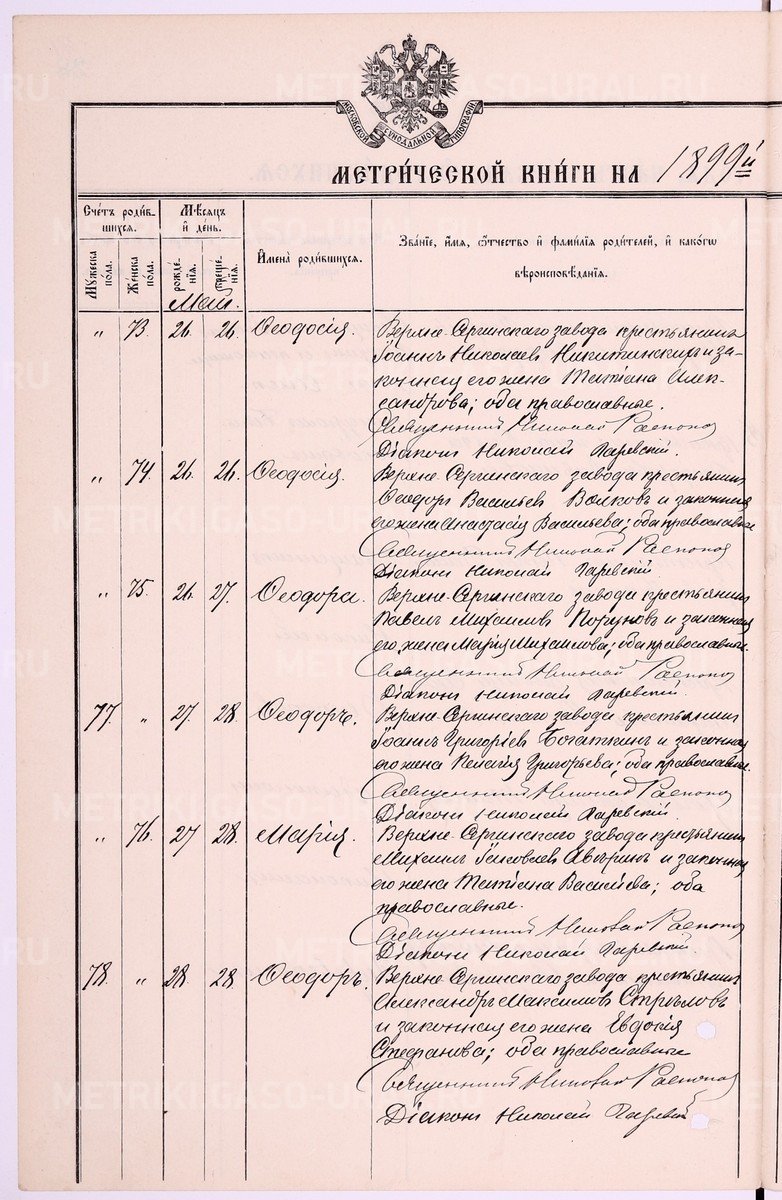 МОСКОВСКОЙ СѴНОДАЛЬНОЙ ТИПОГРАФІИ
МЕТРИ́ЧЕСКОЙ КНИ́ГИ НА 1899й
Сче́тъ роди́в-
шихся.
Мѣ́сяцъ
и҆ де́нь.
И҆мена̀ роди́вшихся.
Зва́нїе, и҆́мя, ѻ҆́тчество и҆ фами́лїя роди́телей, и҆ како́гѡ
вѣроисповѣ́данїя.
Му́жеска по́ла.
Же́нска по́ла.
рожде́нїя.
креще́нїя.
Май.
„ 73. 26. 26. Ѳеодосія. Верхне-Сергинскаго завода крестьянинъ
Іоаннъ Николаевъ Никитинскихъ и за-
конная его жена Татіана Алек-
сандрова; оба православные.
Священникъ Николай
Діаконъ Николай
„ 74. 26. 26. Ѳеодосія. Верхне-Сергинскаго завода крестьянинъ
Ѳеодоръ Васильевъ Волковъ и законная
его жена Анастасія Васильева; оба православные
Священникъ Николай
Діаконъ Николай
„ 75. 26. 27. Ѳеодора. Верхне-Сергинскаго завода крестьянинъ
Павелъ Михаиловъ и законная
его жена Марія Михаилова; оба православные.
Священникъ Николай
Діаконъ Николай
77. „ 27. 28. Ѳеодоръ. Верхне-Сергинскаго завода крестьянинъ
Іоаннъ Григоріевъ Богаткинъ и законная
его жена Пелагія Григорьева; оба православные.
Священникъ Николай
Діаконъ Николай
„ 76. 27 28. Марія. Верхне-Сергинскаго завода крестьянинъ
Михаилъ Іаковлевъ и законная
его жена Татіана Васильева; оба
православные.
Священникъ Николай
Діаконъ Николай
78. „ 28. 28. Ѳеодоръ. Верхне-Сергинскаго завода крестьянинъ
Александръ Максимовъ Стрѣловъ
и законная его жена Евдокія
Стефанова; оба православные
Священникъ Николай
Діаконъ Николай
METRIKI.GASO-URAL.RU